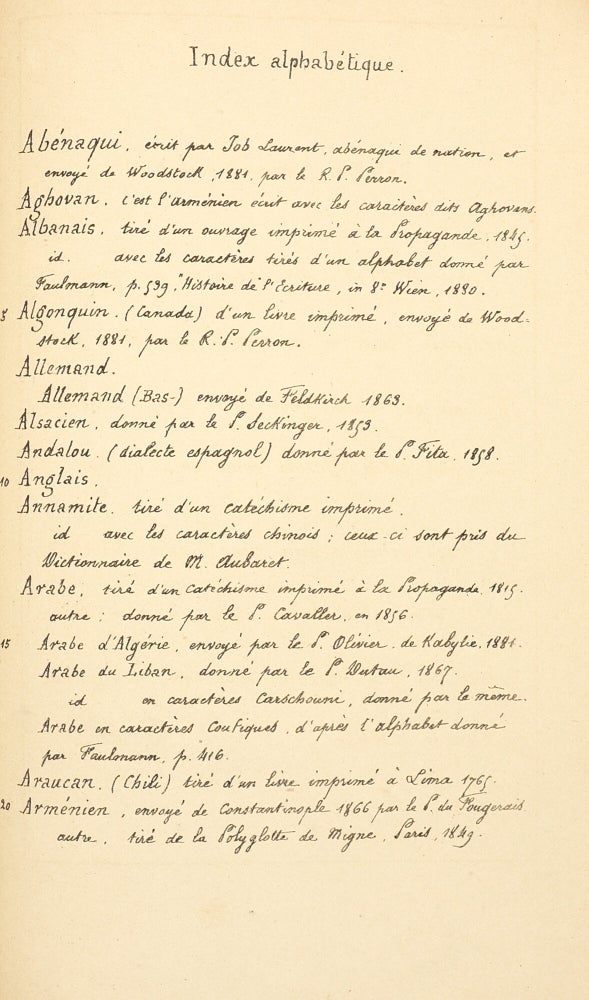 Index alphabétique.
Abénaqui, écrit par Job Laurent, abénaqui de nation, et
envoyé de Woodstock, 1881, par le R. P. Perron.
Aghovan. C'est l'arménien écrit avec les caractères dits Aghovans.
Albanais. tiré d'un ouvrage imprimé à la Propagande. 1845.
id. avec les caractères tirés d'un alphabet donné par
Faulmann, p. 539, "Histoire de l'Ecriture, in 8° Wien, 1880.
5 Algonquin. (Canada) d'un livre imprimé, envoyé de Wood-
stock, 1881, par le R. P. Perron.
Allemand.
Allemand (Bas-) envoyé de Feldkirch 1863.
Alsacien, donné par le P. Seckinger, 1853.
Andalou. (dialecte espagnol) donné par le P. Fita, 1858.
10 Anglais.
Annamite. tiré d'un catéchisme imprimé.
id avec les caractères chinois; ceux-ci sont pris du
Dictionnaire de M. Aubaret.
Arabe, tiré d'un catéchisme imprimé à la Propagande. 1815.
autre: donné par le P. Cavaller, en 1856.
15 Arabe d'Algérie, envoyé par le P. Olivier, de Kabylie, 1881.
Arabe du Liban, donné par le P. Dutau, 1867.
id en caractères Carschouni, donné par le même.
Arabe en caractères Coufiques, d'après l'alphabet donné
par Faulmann, p. 416.
Araucan. (Chili) tiré d'un livre imprimé à Lima 1765.
20 Arménien, envoyé de Constantinople 1866 par le P. du Fougerais.
autre, tiré de la Polyglotte de Migne, Paris, 1849.